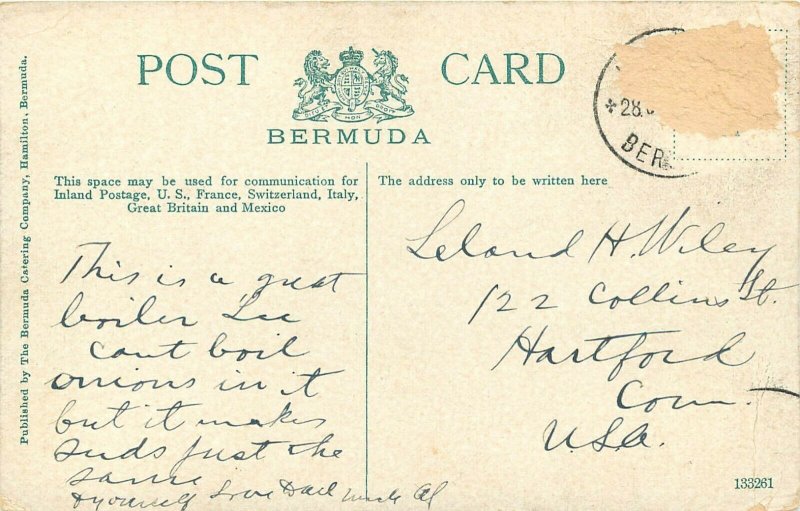 POST CARD
BERMUDA
Published by The Bermuda Catering Company, Hamilton, Bermuda.
This space may be used for communication for
Inland Postage, U. S., France, Switzerland, Italy,
Great Britain and Mexico
The address only to be written here
*28.
BER
This is a great
boiler Lee
cant boil
onions in it
but it makes
suds just the
same
& yourself Love
Leland H. Wiley
122 Collins St.
Hartford
Conn.
U.S.A.
133261